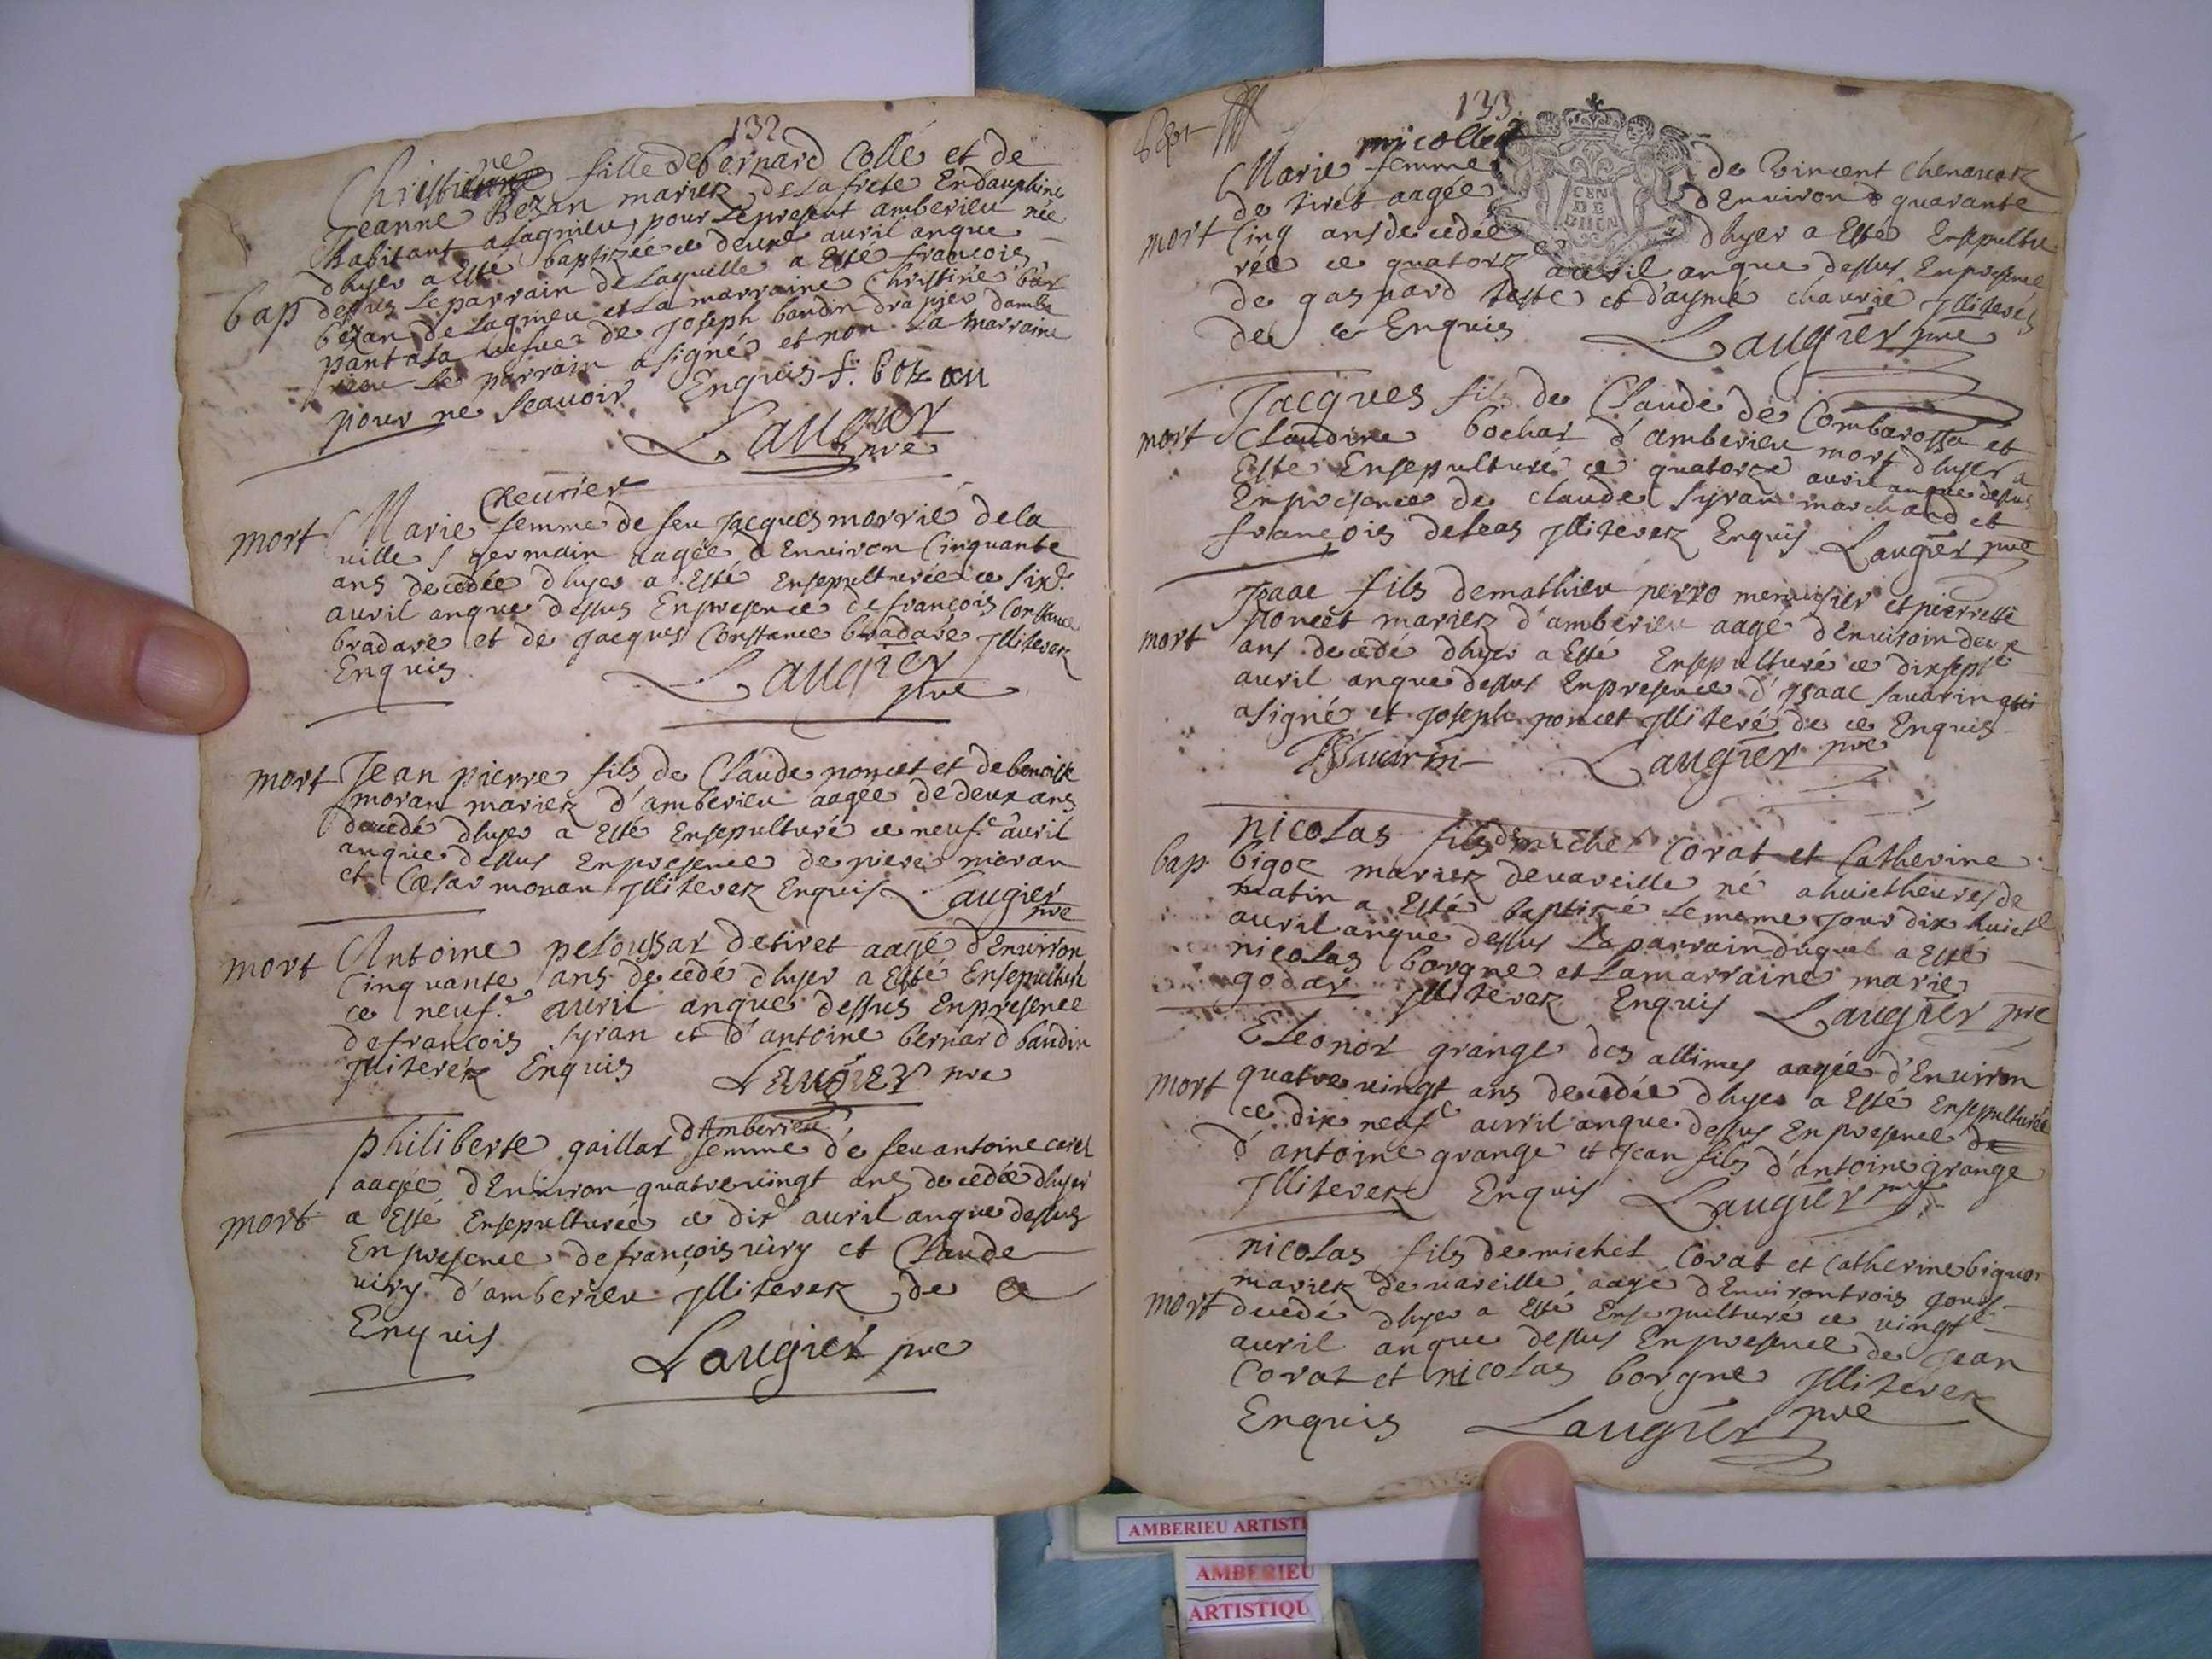 132
Christienne fille de bernard Collé et de
Jeanne Bezan mariez de la frete En dauphine
habitant a lagnieu pour le present amberieu née
dhyer a Esté baptizée ce deux avril anque
bap dessus Le parrain de Laquelle a Esté francois
bezan de Lagnieu et La marraine Christine
vefve de Joseph baudin drapier dambe
rieu Le parrain a signé et non La marraine
pour ne scavoir Enquis f. bozan
Laugier
pre
Cheurier
mort Marie femme de feu Jacques morrié de la
ville s germain aagée d'Environ Cinquante
ans decedée dhyer a Esté Ensepulturée ce six.e
avril anque dessus En presence de francois Constance
bradare et de Jacques Constance bradare Illiterez
Enquis
Laugier
pre
mort Jean pierre fils de Claude poncet et de benoiste
moran mariez d'amberieu aagée de deux ans
decedé dhyer a Esté Ensepulturé ce neuf.e avril
anque dessus En presence de piere moran
et Cæsar moran Illiterez Enquis Laugier
pre
mort Antoine peloussar de tiret aagé d'Environ
Cinquante ans decedé dhyer a Esté Ensepulturé
ce neuf.e avril anque dessus En presence
de francois Syran et d'antoine bernard baudin
Illiteréz Enquis Laugier pre
d'Amberieu
philiberte gaillar femme de feu antoine
aagée d'Environ quatre vingt ans decedée dhyer
mort a Esté Ensepulturée ce dix.e avril anque dessus
En presence de francois viry et Claude
viry d'amberieu Illiterez de ce
Enquis
Laugier pre
133
micollet
Marie femme de Vincent chenavatz
de tiret aagée d'Environ quarante
mort Cinq ans decedée dhyer a Esté Ensepultu
rée ce quatorze avril anque dessus En presence
de gaspard teste et d'aymé chavrié Illiterés
de ce Enquis Laugier pre
Jacques fils de Claude de Combarossa et
mort Claudine bochar d'amberieu mort dhyer a
Esté Ensepulturé ce quatorze avril anque dessus
En presence de claude Syran marchand et
francois deleas Illiterez Enquis Laugier pre
Isaac fils de mathieu perro menuisier et pierrette
poncet mariez d'amberieu aagé d'Environ deux
mort ans decedé dhyer a Esté Ensepulturé ce dix sept.e
avril anque dessus En presence d'Isaac savarin qui
a signé et Joseph poncet Illiteré de ce Enquis
Laugier pre
nicolas fils de michel Corat et Catherine
bap bigoz mariez de vareille né a huict heures de
matin a Esté baptizé le meme jour dix huict.e
avril anque dessus La parrain duquel a Esté
nicolas borgne et la marraine marie
godar Illiterez Enquis Laugier pre
Eleonor grange des allimes aagée d'Environ
mort quatre vingt ans decedée dhyer a Esté Ensepulturée
ce dix neuf.e avril anque dessus En presence de
d'antoine grange et Jean fils d'antoine grange
Illiterez Enquis Laugier pre
nicolas fils de michel Corat et Catherine bigoz
mariez de vareille aagé d'Environ trois jours
mort decedé dhyer a Esté Ensepulturé ce vingt.e
avril anque dessus En presence de Jean
Corat et nicolas borgne Illiterez
Enquis Laugier pre
AMBERIEU ARTISTI
AMBERIEU
ARTISTIQU